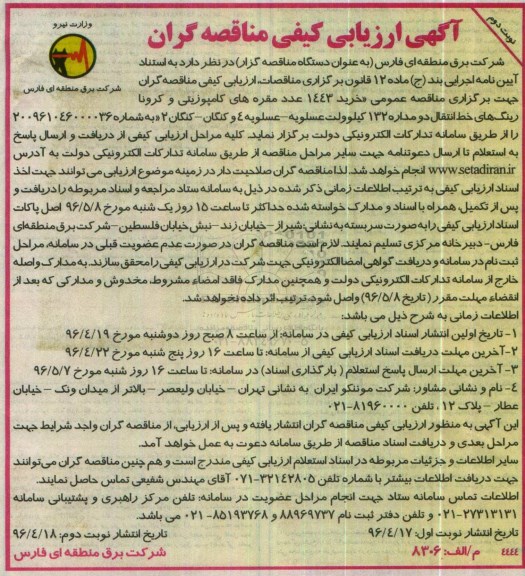 نوبت دوم
آگهی ارزیابی کیفی مناقصه گران
وزارت نیرو
شرکت برق منطقه ای فارس
شرکت برق منطقه ای فارس (به عنوان دستگاه مناقصه گزار) در نظر دارد به استناد
آیین نامه اجرایی بند (ج) ماده ۱۲ قانون برگزاری مناقصات، ارزیابی کیفی مناقصه گران
جهت برگزاری مناقصه عمومی «خرید ۱۴۴۳ عدد مقره های کامپوزیتی و کرونا
رینگ های خط انتقال دو مداره ۱۳۲ کیلوولت عسلویه – عسلویه ۴ و کنگان – کنگان ۲» به شماره ۲۰۰۹۶۱۰۴۶۰۰۰۰۳۶
را از طریق سامانه تدارکات الکترونیکی دولت برگزار نماید. کلیه مراحل ارزیابی کیفی از دریافت و ارسال پاسخ
به استعلام تا ارسال دعوتنامه جهت سایر مراحل مناقصه از طریق سامانه تدارکات الکترونیکی دولت به آدرس
www.setadiran.ir انجام خواهد شد. لذا مناقصه گران صلاحیت دار در زمینه موضوع ارزیابی می توانند جهت اخذ
اسناد ارزیابی کیفی به ترتیب اطلاعات زمانی ذکر شده در ذیل به سامانه ستاد مراجعه و اسناد مربوطه را دریافت و
پس از تکمیل، همراه با اسناد و مدارک خواسته شده حداکثر تا ساعت ۱۵ روز یک شنبه مورخ ۹۶/۵/۸ اصل پاکات
اسناد ارزیابی کیفی را به صورت سربسته به نشانی: شیراز – خیابان زند – نبش خیابان فلسطین – شرکت برق منطقه ای
فارس – دبیرخانه مرکزی تسلیم نمایند. لازم است مناقصه گران در صورت عدم عضویت قبلی در سامانه، مراحل
ثبت نام در سامانه و دریافت گواهی امضا الکترونیکی جهت شرکت در ارزیابی کیفی را محقق سازند. به مدارک واصله
خارج از سامانه تدارکات الکترونیکی دولت و همچنین مدارک فاقد امضاء مشروط، مخدوش و مدارکی که بعد از
انقضاء مهلت مقرر (تاریخ ۹۶/۵/۸) واصل شود، ترتیب اثر داده نخواهد شد.
اطلاعات زمانی به شرح ذیل می باشد:
۱- تاریخ اولین انتشار اسناد ارزیابی کیفی در سامانه: از ساعت ۸ صبح روز دوشنبه مورخ ۹۶/۴/۱۹
۲- آخرین مهلت دریافت اسناد ارزیابی کیفی از سامانه: تا ساعت ۱۶ روز پنج شنبه مورخ ۹۶/۴/۲۲
۳- آخرین مهلت ارسال پاسخ استعلام (بارگذاری اسناد) در سامانه: تا ساعت ۱۶ روز شنبه مورخ ۹۶/۵/۷
۴- نام و نشانی مشاور: شرکت موننکو ایران به نشانی تهران – خیابان ولیعصر – بالاتر از میدان ونک – خیابان
عطار – پلاک ۱۲ . تلفن ۸۱۹۶۰۰۰۰-۰۲۱
این آگهی به منظور ارزیابی کیفی مناقصه گران انتشار یافته و پس از ارزیابی، از مناقصه گران واجد شرایط جهت
مراحل بعدی و دریافت اسناد مناقصه از طریق سامانه دعوت به عمل خواهد آمد.
سایر اطلاعات و جزئیات مربوطه در اسناد استعلام ارزیابی کیفی مندرج است و هم چنین مناقصه گران می توانند
جهت دریافت اطلاعات بیشتر با شماره تلفن ۳۲۱۴۲۸۰۵-۰۷۱ آقای مهندس شفیعی تماس حاصل نمایند.
اطلاعات تماس سامانه ستاد جهت انجام مراحل عضویت در سامانه: تلفن مرکز راهبری و پشتیبانی سامانه
۲۷۳۱۳۱۳۱-۰۲۱ و تلفن دفتر ثبت نام ۸۸۹۶۹۷۳۷ و ۸۵۱۹۳۷۶۸-۰۲۱ می باشد.
تاریخ انتشار نوبت اول: ۹۶/۴/۱۷ تاریخ انتشار نوبت دوم: ۹۶/۴/۱۸
۴۴۴۴ م/الف: ۸۳۰۶ شرکت برق منطقه ای فارس